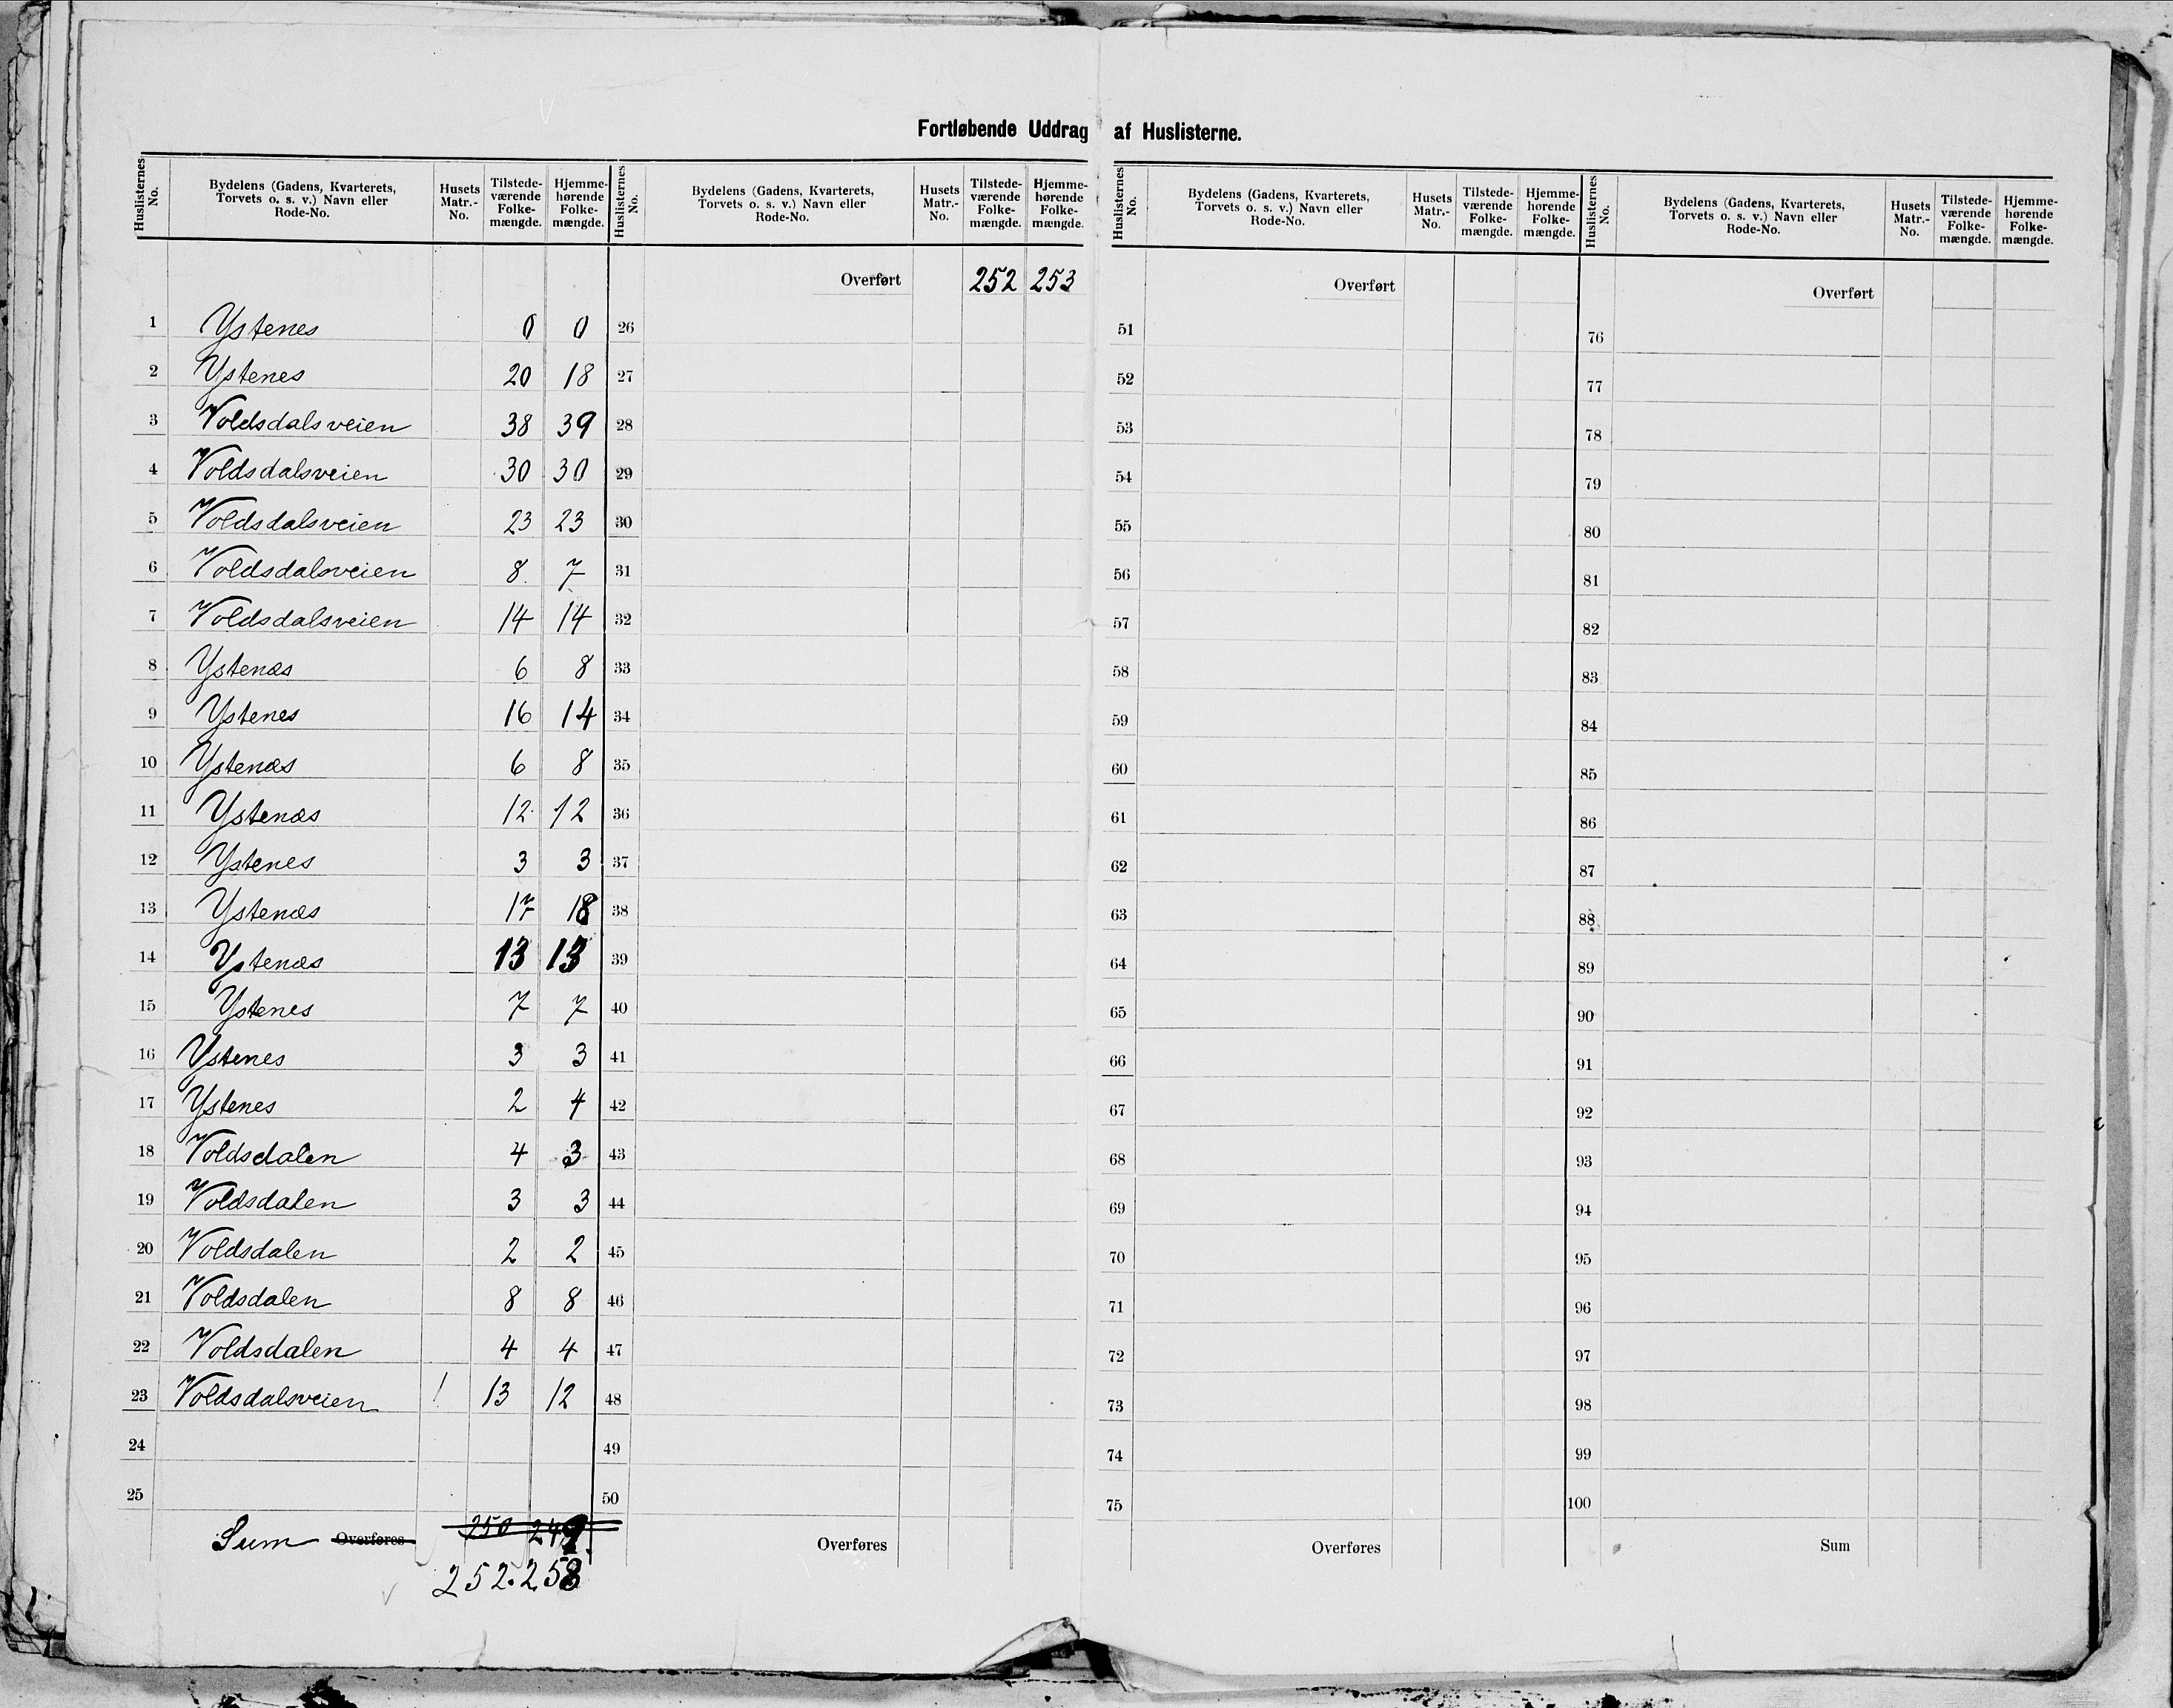 Fortløbende Uddrag af Huslisterne.
Huslisternes No. Bydelens (Gadens, Kvarterets, Torvets o. s. v.) Navn eller Rode-No. Husets Matr.-No. Tilstedeværende Folkemængde. Hjemmehørende Folkemængde. Huslisternes No. Bydelens (Gadens, Kvarterets, Torvets o. s. v.) Navn eller Rode-No. Husets Matr.-No. Tilstedeværende Folkemængde. Hjemmehørende Folkemængde. Huslisternes No. Bydelens (Gadens, Kvarterets, Torvets o. s. v.) Navn eller Rode-No. Husets Matr.-No. Tilstedeværende Folkemængde. Hjemmehørende Folkemængde. Huslisternes No. Bydelens (Gadens, Kvarterets, Torvets o. s. v.) Navn eller Rode-No. Husets Matr.-No. Tilstedeværende Folkemængde. Hjemmehørende Folkemængde.
Overført 252 253 Overført Overført
1 Ystenes 0 0 26 51 76
2 Ystenes 20 18 27 52 77
3 Voldsdalsveien 38 39 28 53 78
4 Voldsdalsveien 30 30 29 54 79
5 Voldsdalsveien 23 23 30 55 80
6 Voldsdalsveien 8 7 31 56 81
7 Voldsdalsveien 14 14 32 57 82
8 Ystenæs 6 8 33 58 83
9 Ystenes 16 14 34 59 84
10 Ystenæs 6 8 35 60 85
11 Ystenæs 12 12 36 61 86
12 Ystenes 3 3 37 62 87
13 Ystenæs 17 18 38 63 88
14 Ystenæs 13 13 39 64 89
15 Ystenes 7 7 40 65 90
16 Ystenes 3 3 41 66 91
17 Ystenes 2 4 42 67 92
18 Voldsdalen 4 3 43 68 93
19 Voldsdalen 3 3 44 69 94
20 Voldsdalen 2 2 45 70 95
21 Voldsdalen 8 8 46 71 96
22 Voldsdalen 4 4 47 72 97
23 Voldsdalsveien 13 12 48 73 98
24 49 74 99
25 50 75 100
Sum Overføres 250 249 Overføres Overføres Sum
252. 253